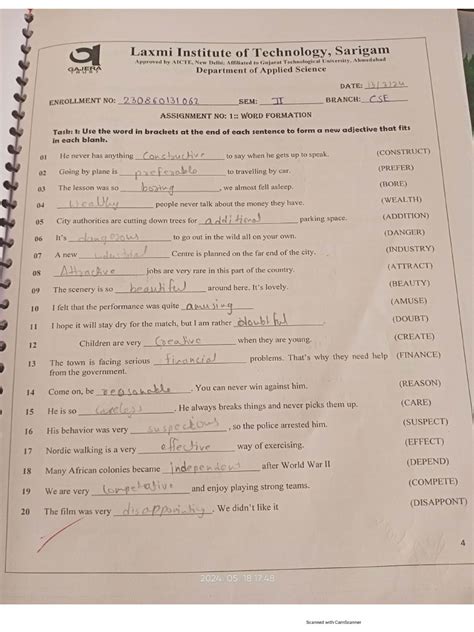 GAJERA
TRUST
Laxmi Institute of Technology, Sarigam
Approved by AICTE, New Delhi; Affiliated to Gujarat Technological University, Ahmedabad
Department of Applied Science
DATE: 15/3/24
ENROLLMENT NO: 230860131062 SEM: II BRANCH: CSE
ASSIGNMENT NO: 1:: WORD FORMATION
Task: 1: Use the word in brackets at the end of each sentence to form a new adjective that fits
in each blank.
01 He never has anything Constructive to say when he gets up to speak. (CONSTRUCT)
02 Going by plane is preferable to travelling by car. (PREFER)
03 The lesson was so boring, we almost fell asleep. (BORE)
04 Wealthy people never talk about the money they have. (WEALTH)
05 City authorities are cutting down trees for additional parking space. (ADDITION)
06 It's dangerous to go out in the wild all on your own. (DANGER)
07 A new industrial Centre is planned on the far end of the city. (INDUSTRY)
08 Attractive jobs are very rare in this part of the country. (ATTRACT)
09 The scenery is so beautiful around here. It's lovely. (BEAUTY)
10 I felt that the performance was quite amusing (AMUSE)
11 I hope it will stay dry for the match, but I am rather doubtful. (DOUBT)
12 Children are very Creative when they are young. (CREATE)
13 The town is facing serious financial problems. That's why they need help (FINANCE)
from the government.
14 Come on, be reasonable. You can never win against him. (REASON)
15 He is so careless. He always breaks things and never picks them up. (CARE)
16 His behavior was very suspecious, so the police arrested him. (SUSPECT)
17 Nordic walking is a very effective way of exercising. (EFFECT)
18 Many African colonies became independent after World War II (DEPEND)
19 We are very Competative and enjoy playing strong teams. (COMPETE)
20 The film was very disappointing. We didn't like it (DISAPPONT)
4
2024 05 18 17:48
Scanned with CamScanner